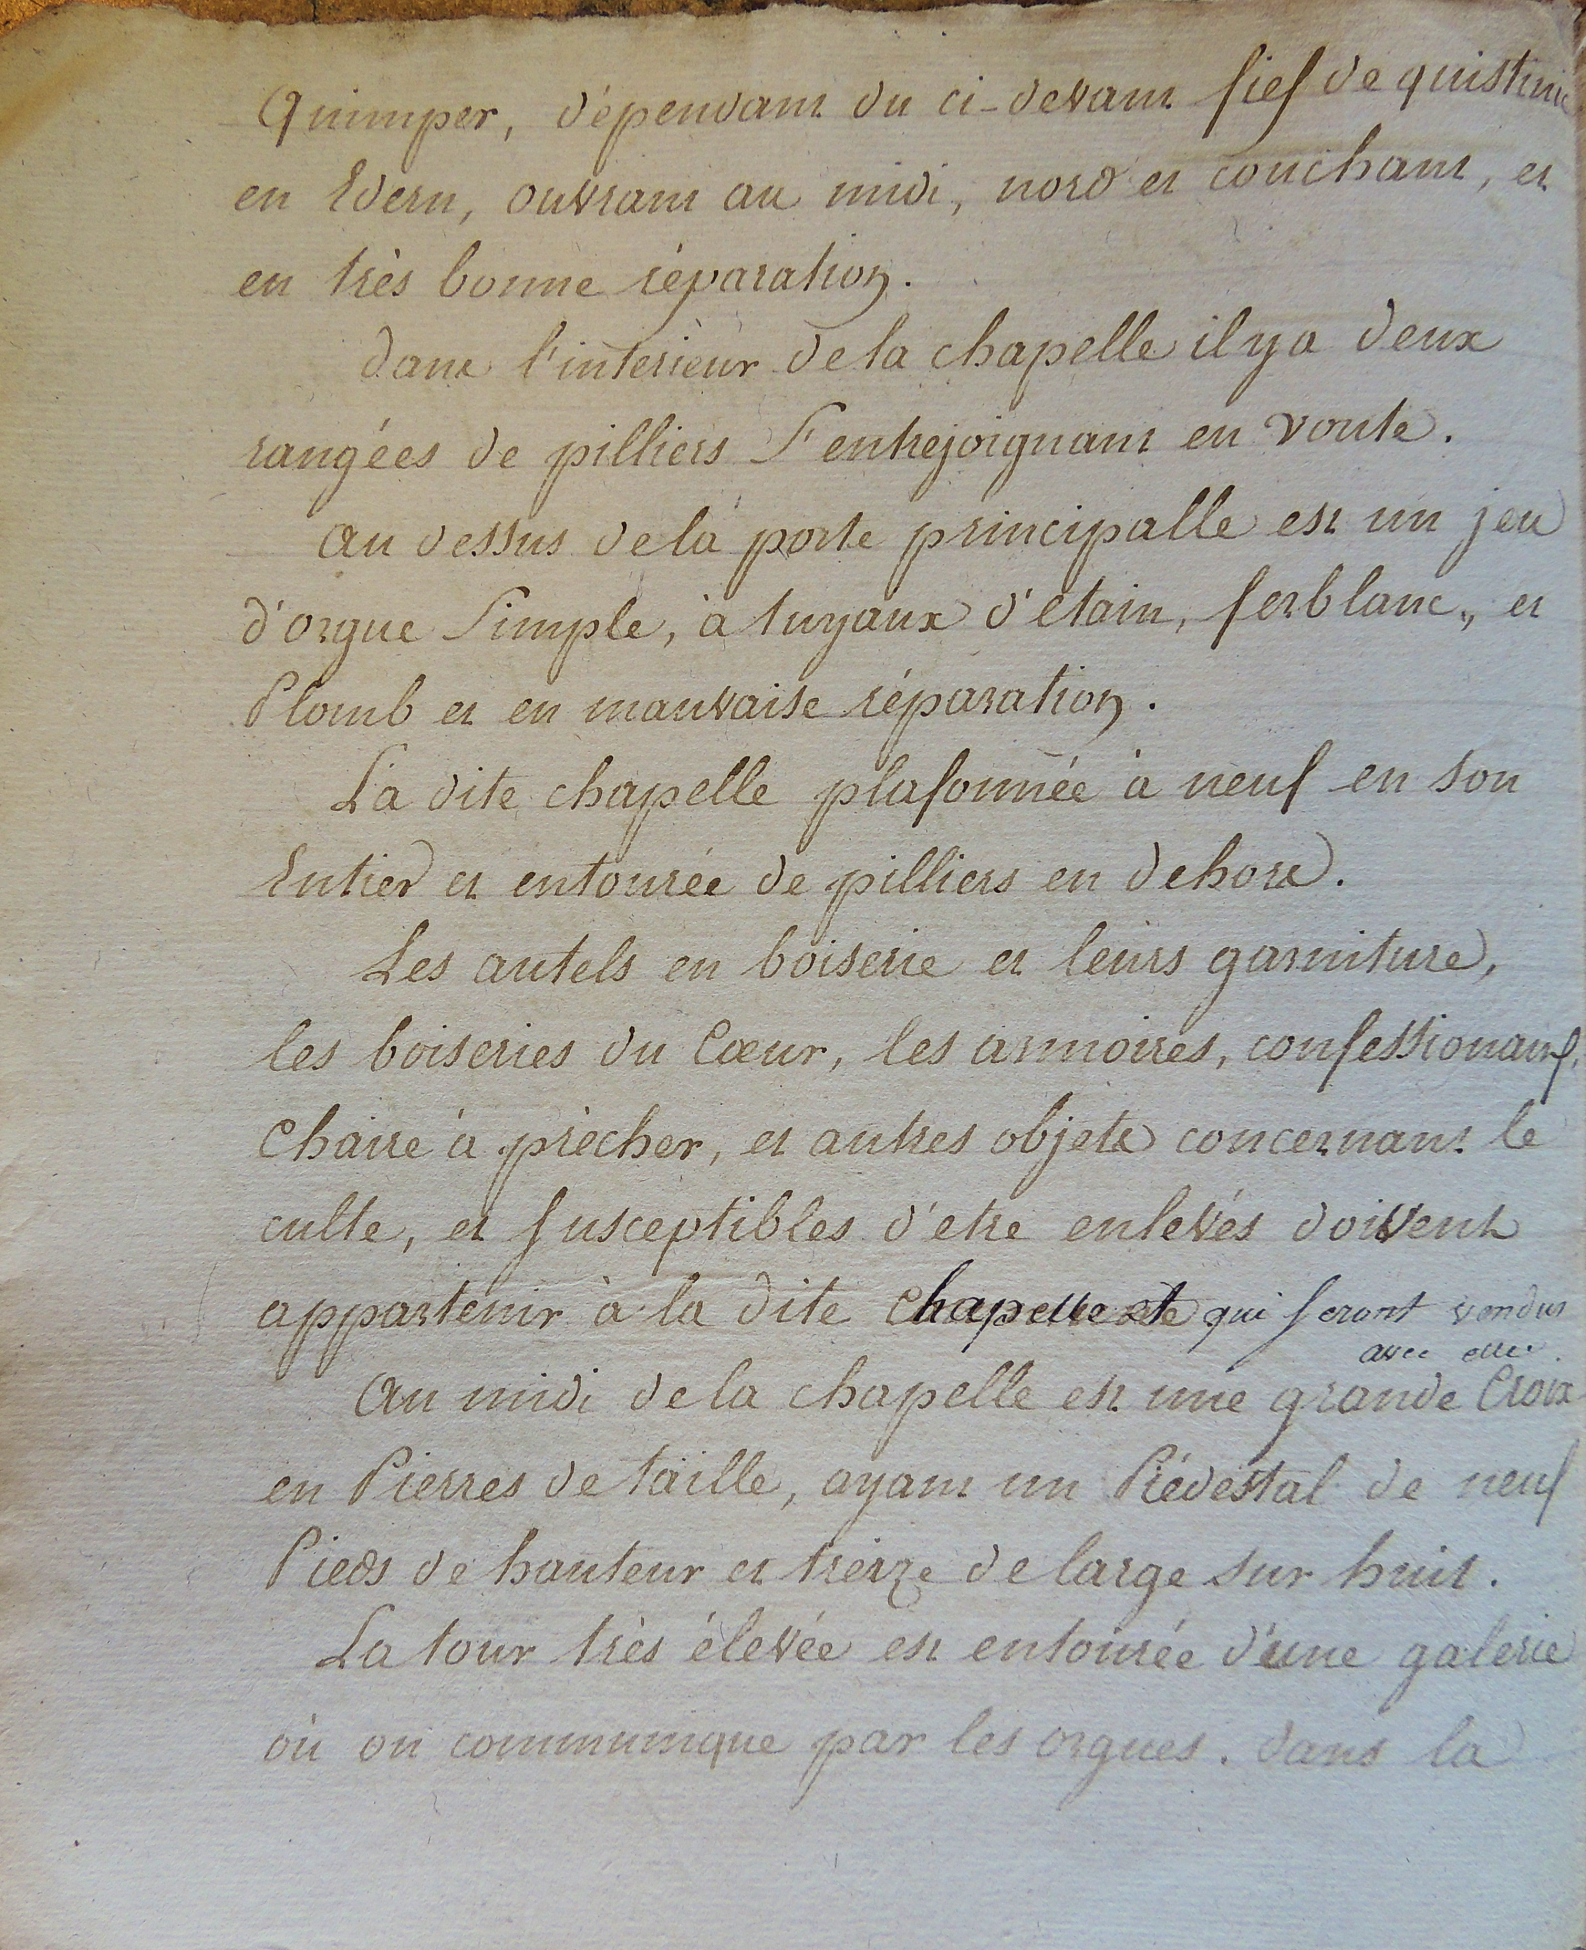 Quimper, dépendant du ci-devant fief de quistinic
en Edern, ouvrant au midi, nord et couchant, et
en très bonne réparation.
dans l'interieur de la chapelle il y a deux
rangées de pilliers s'entrejoignant en voute.
Au dessus de la porte principalle est un jeu
d'orgue simple, à tuyaux d'étain, ferblanc, et
Plomb et en mauvaise réparation.
La dite chapelle plafonnée à neuf en son
Entier et entourée de pilliers en dehors.
Les autels en boiserie et leurs garniture,
les boiseries du Cœur, les armoires, confessionaux,
Chaire à prècher, et autres objets concernant le
culte, et susceptibles d'etre enlevés doivent
appartenir à la dite chapelle et qui seront vendus
avec elle.
Au midi de la chapelle est une grande Croix
en Pierres de taille, ayant un Piédestal de neuf
Pieds de hauteur et treize de large sur huit.
La tour très élevée est entourée d'une galerie
où on communique par les orgues. dans la